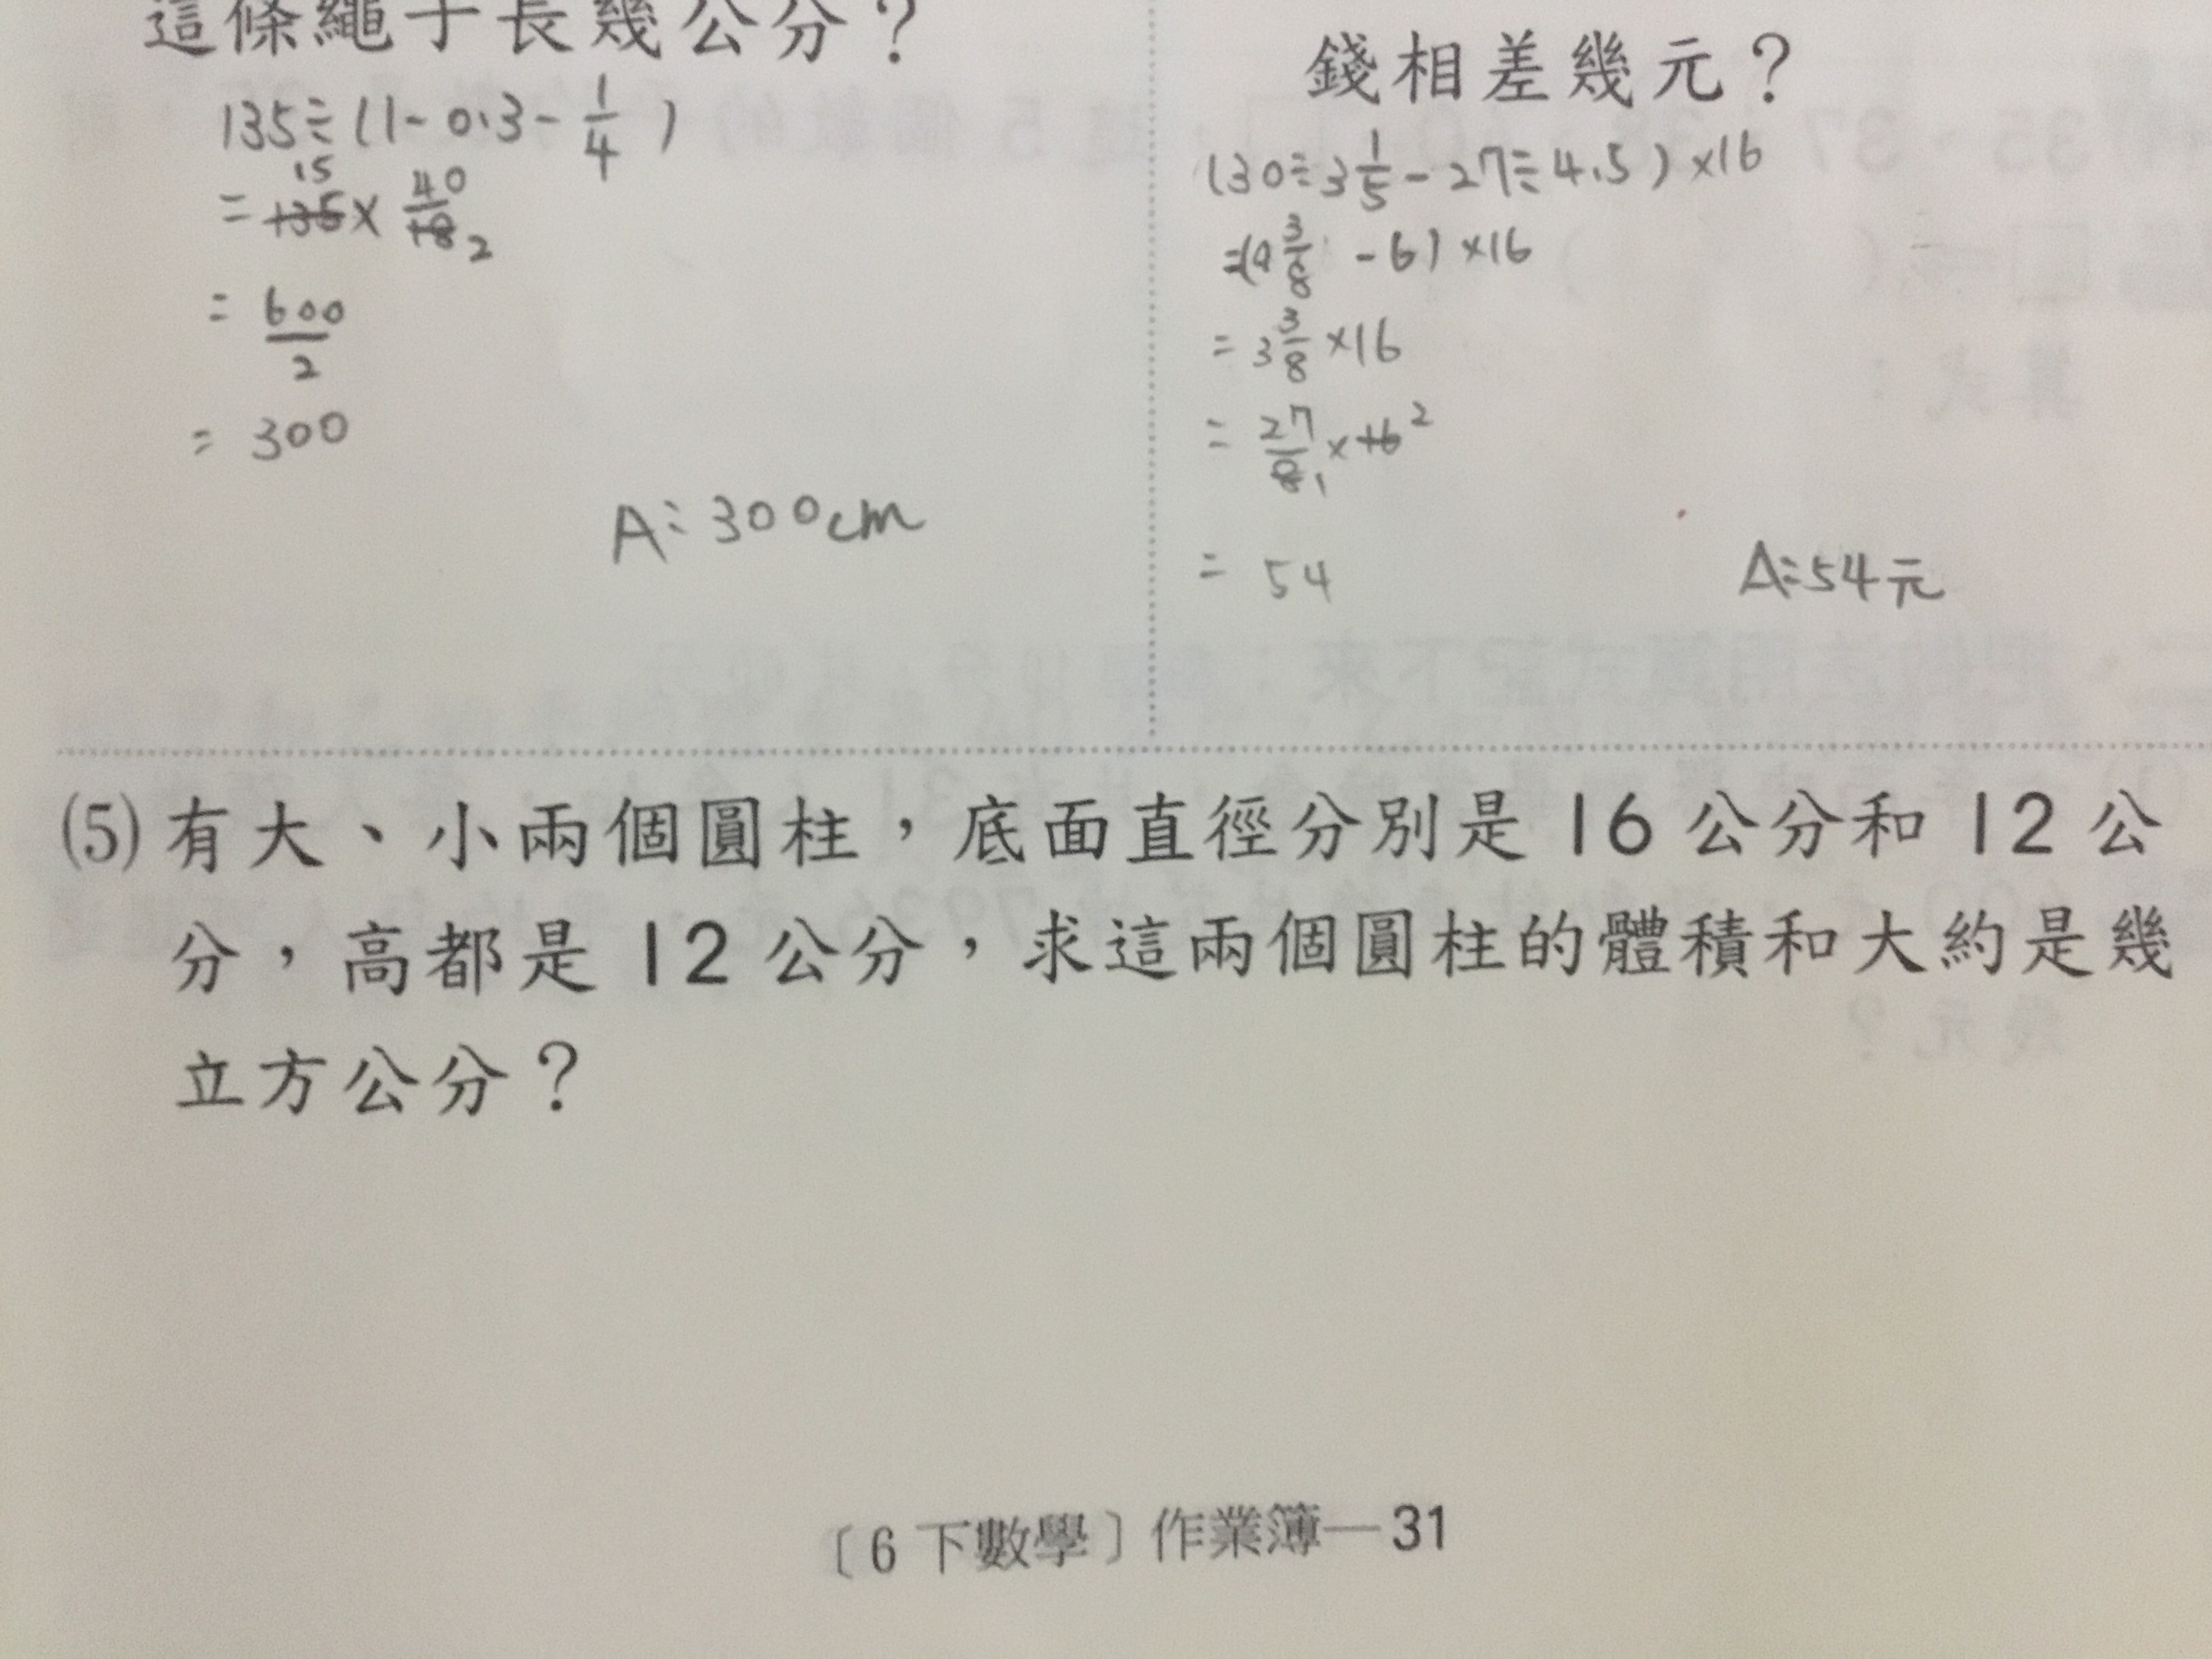 這條繩子長幾公分？
135÷(1-0.3-1/4)
=135 15×40/18 2
=600/2
=300
A：300cm
錢相差幾元？
(30÷3 1/5-27÷4.5)×16
=(9 3/8 -6)×16
=3 3/8×16
=27/8 1×16 2
=54
A：54元
(5)有大、小兩個圓柱，底面直徑分別是16公分和12公
分，高都是12公分，求這兩個圓柱的體積和大約是幾
立方公分？
〔6下數學〕作業簿—31